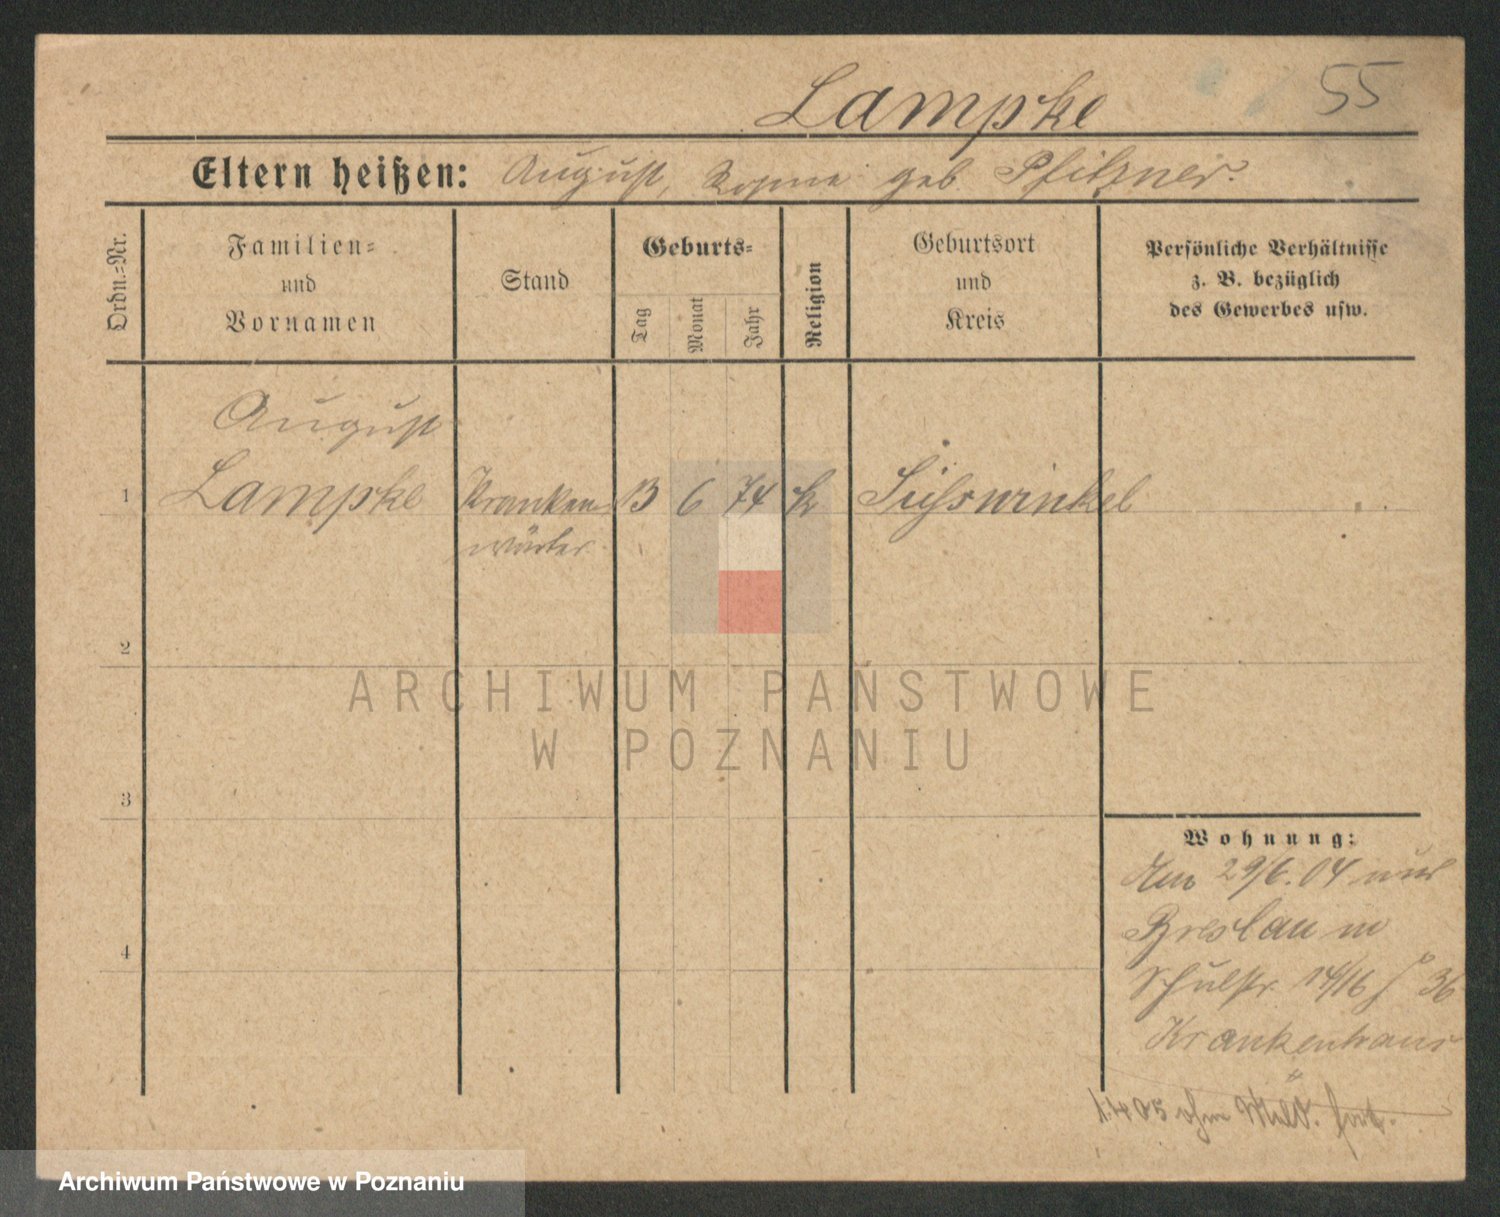 Lampke 55
Eltern heißen: August, Rosina geb Pfitzner.
Ordn.=Nr.
Familien=
und
Vornamen
Stand
Geburts=
Tag
Monat
Jahr
Religion
Geburtsort
und
Kreis
Persönliche Verhältnisse
z. B. bezüglich
des Gewerbes usw.
August
1 Lampke Kranken 13 6 74 k Süsswinkel
wärter
2
3
4
Wohnung:
29/6. 04
Breslau in
Schulstr. 14/16 36
Krankenhaus
1.4 05 ohne Meld. fort.
ARCHIWUM PAŃSTWOWE
W POZNANIU
Archiwum Państwowe w Poznaniu